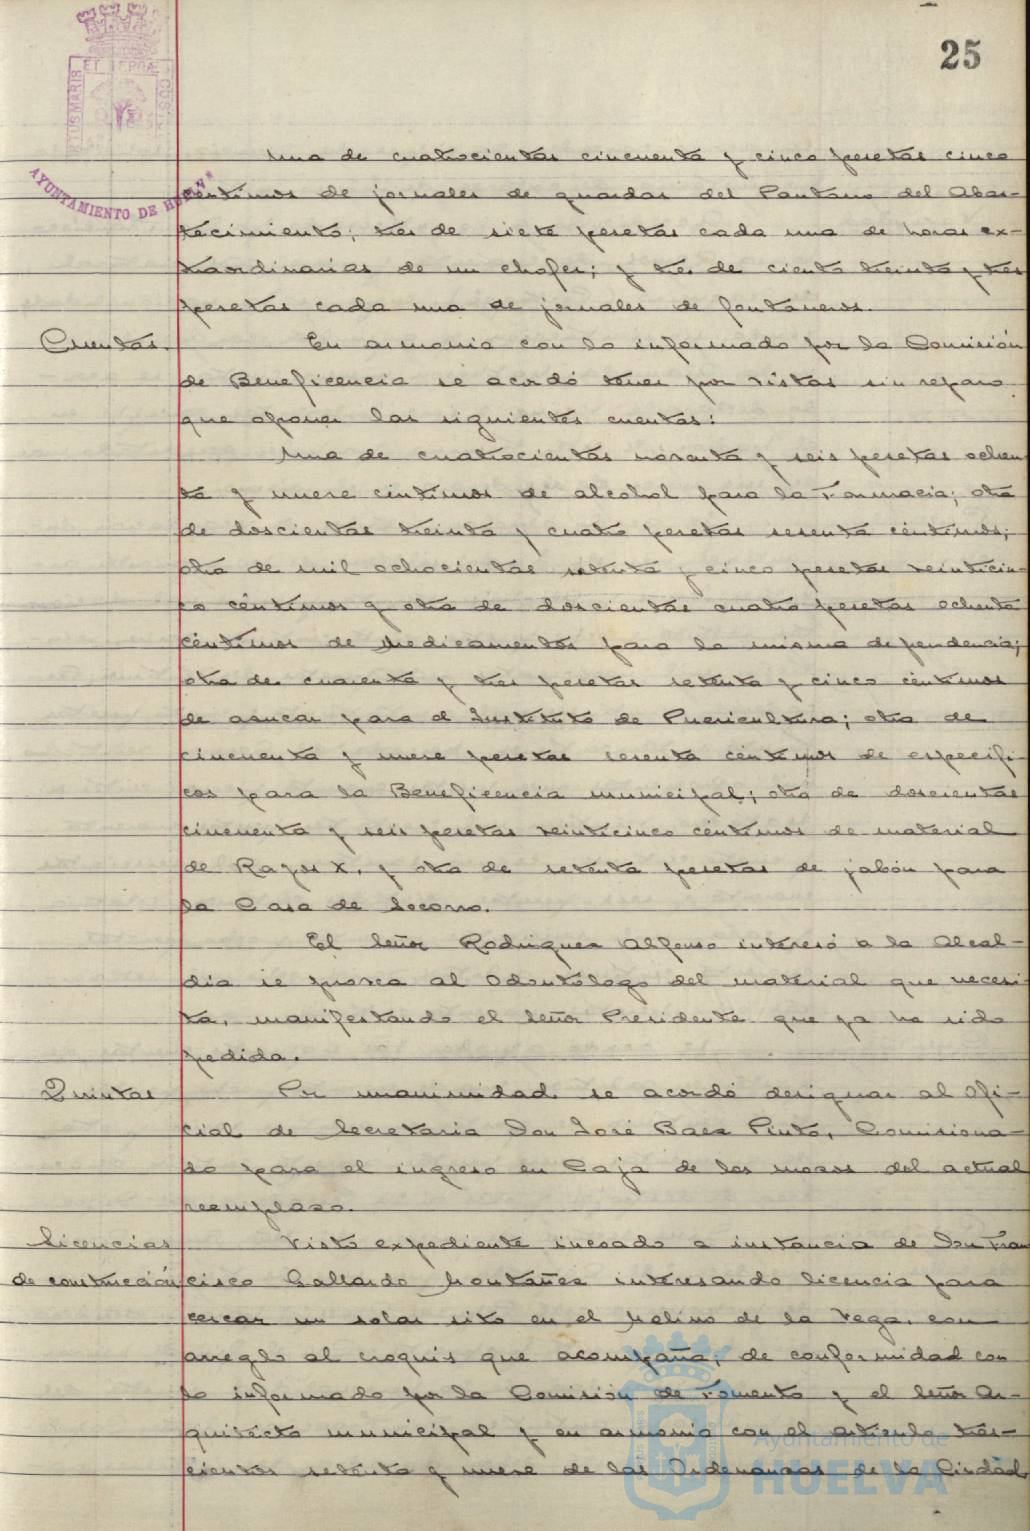 25
AYUNTAMIENTO DE HUELVA
Una de cuatrocientas cincuenta y cinco pesetas cinco
céntimos de jornales de guardas del Pantano del Abas-
tecimiento; tres de siete pesetas cada una de horas ex-
traordinarias de un chofer; y tres de ciento treinta y tres
pesetas cada una de jornales de fontaneros.
Cuentas. En armonia con lo informado por la Comisión
de Beneficencia se acordó tener por vistas sin reparo
que oponer las siguientes cuentas:
Una de cuatrocientas noventa y seis pesetas ochen
ta y nueve céntimos de alcohol para la Farmacia; otra
de doscientas treinta y cuatro pesetas sesenta céntimos;
otra de mil ochocientas setenta y cinco pesetas veinticin-
co céntimos y otra de doscientas cuatro pesetas ochenta
céntimos de medicamentos para la misma dependencia;
otra de cuarenta y tres pesetas setenta y cinco céntimos
de azucar para el Instituto de Puericultura; otra de
cincuenta y nueve pesetas sesenta céntimos de específi-
cos para la Beneficencia municipal; otra de doscientas
cincuenta y seis pesetas veinticinco céntimos de material
de Rayos X, y otra de setenta pesetas de jabón para
la Casa de Socorro.
El Señor Rodriguez Alfonso interesó a la Alcal-
dia se provea al Odontólogo del material que necesi
ta, manifestando el Señor Presidente que ya ha sido
pedido.
Quintas Por unanimidad se acordó designar al Ofi-
cial de Secretaria Don José Baez Pinto, Comisiona-
do para el ingreso en Caja de los mozos del actual
reemplazo.
Licencias Visto expediente incoado a instancia de Don Fran
de construcción cisco Gallardo Montañez interesando licencia para
cercar un solar sito en el Molino de la Vega, con
arreglo al croquis que acompaña; de conformidad con
lo informado por la Comisión de Fomento y el Señor Ar-
quitecto municipal y en armonia con el articulo tres-
cientos setenta y nueve de las Ordenanzas de la Ciudad
Ayuntamiento de
HUELVA